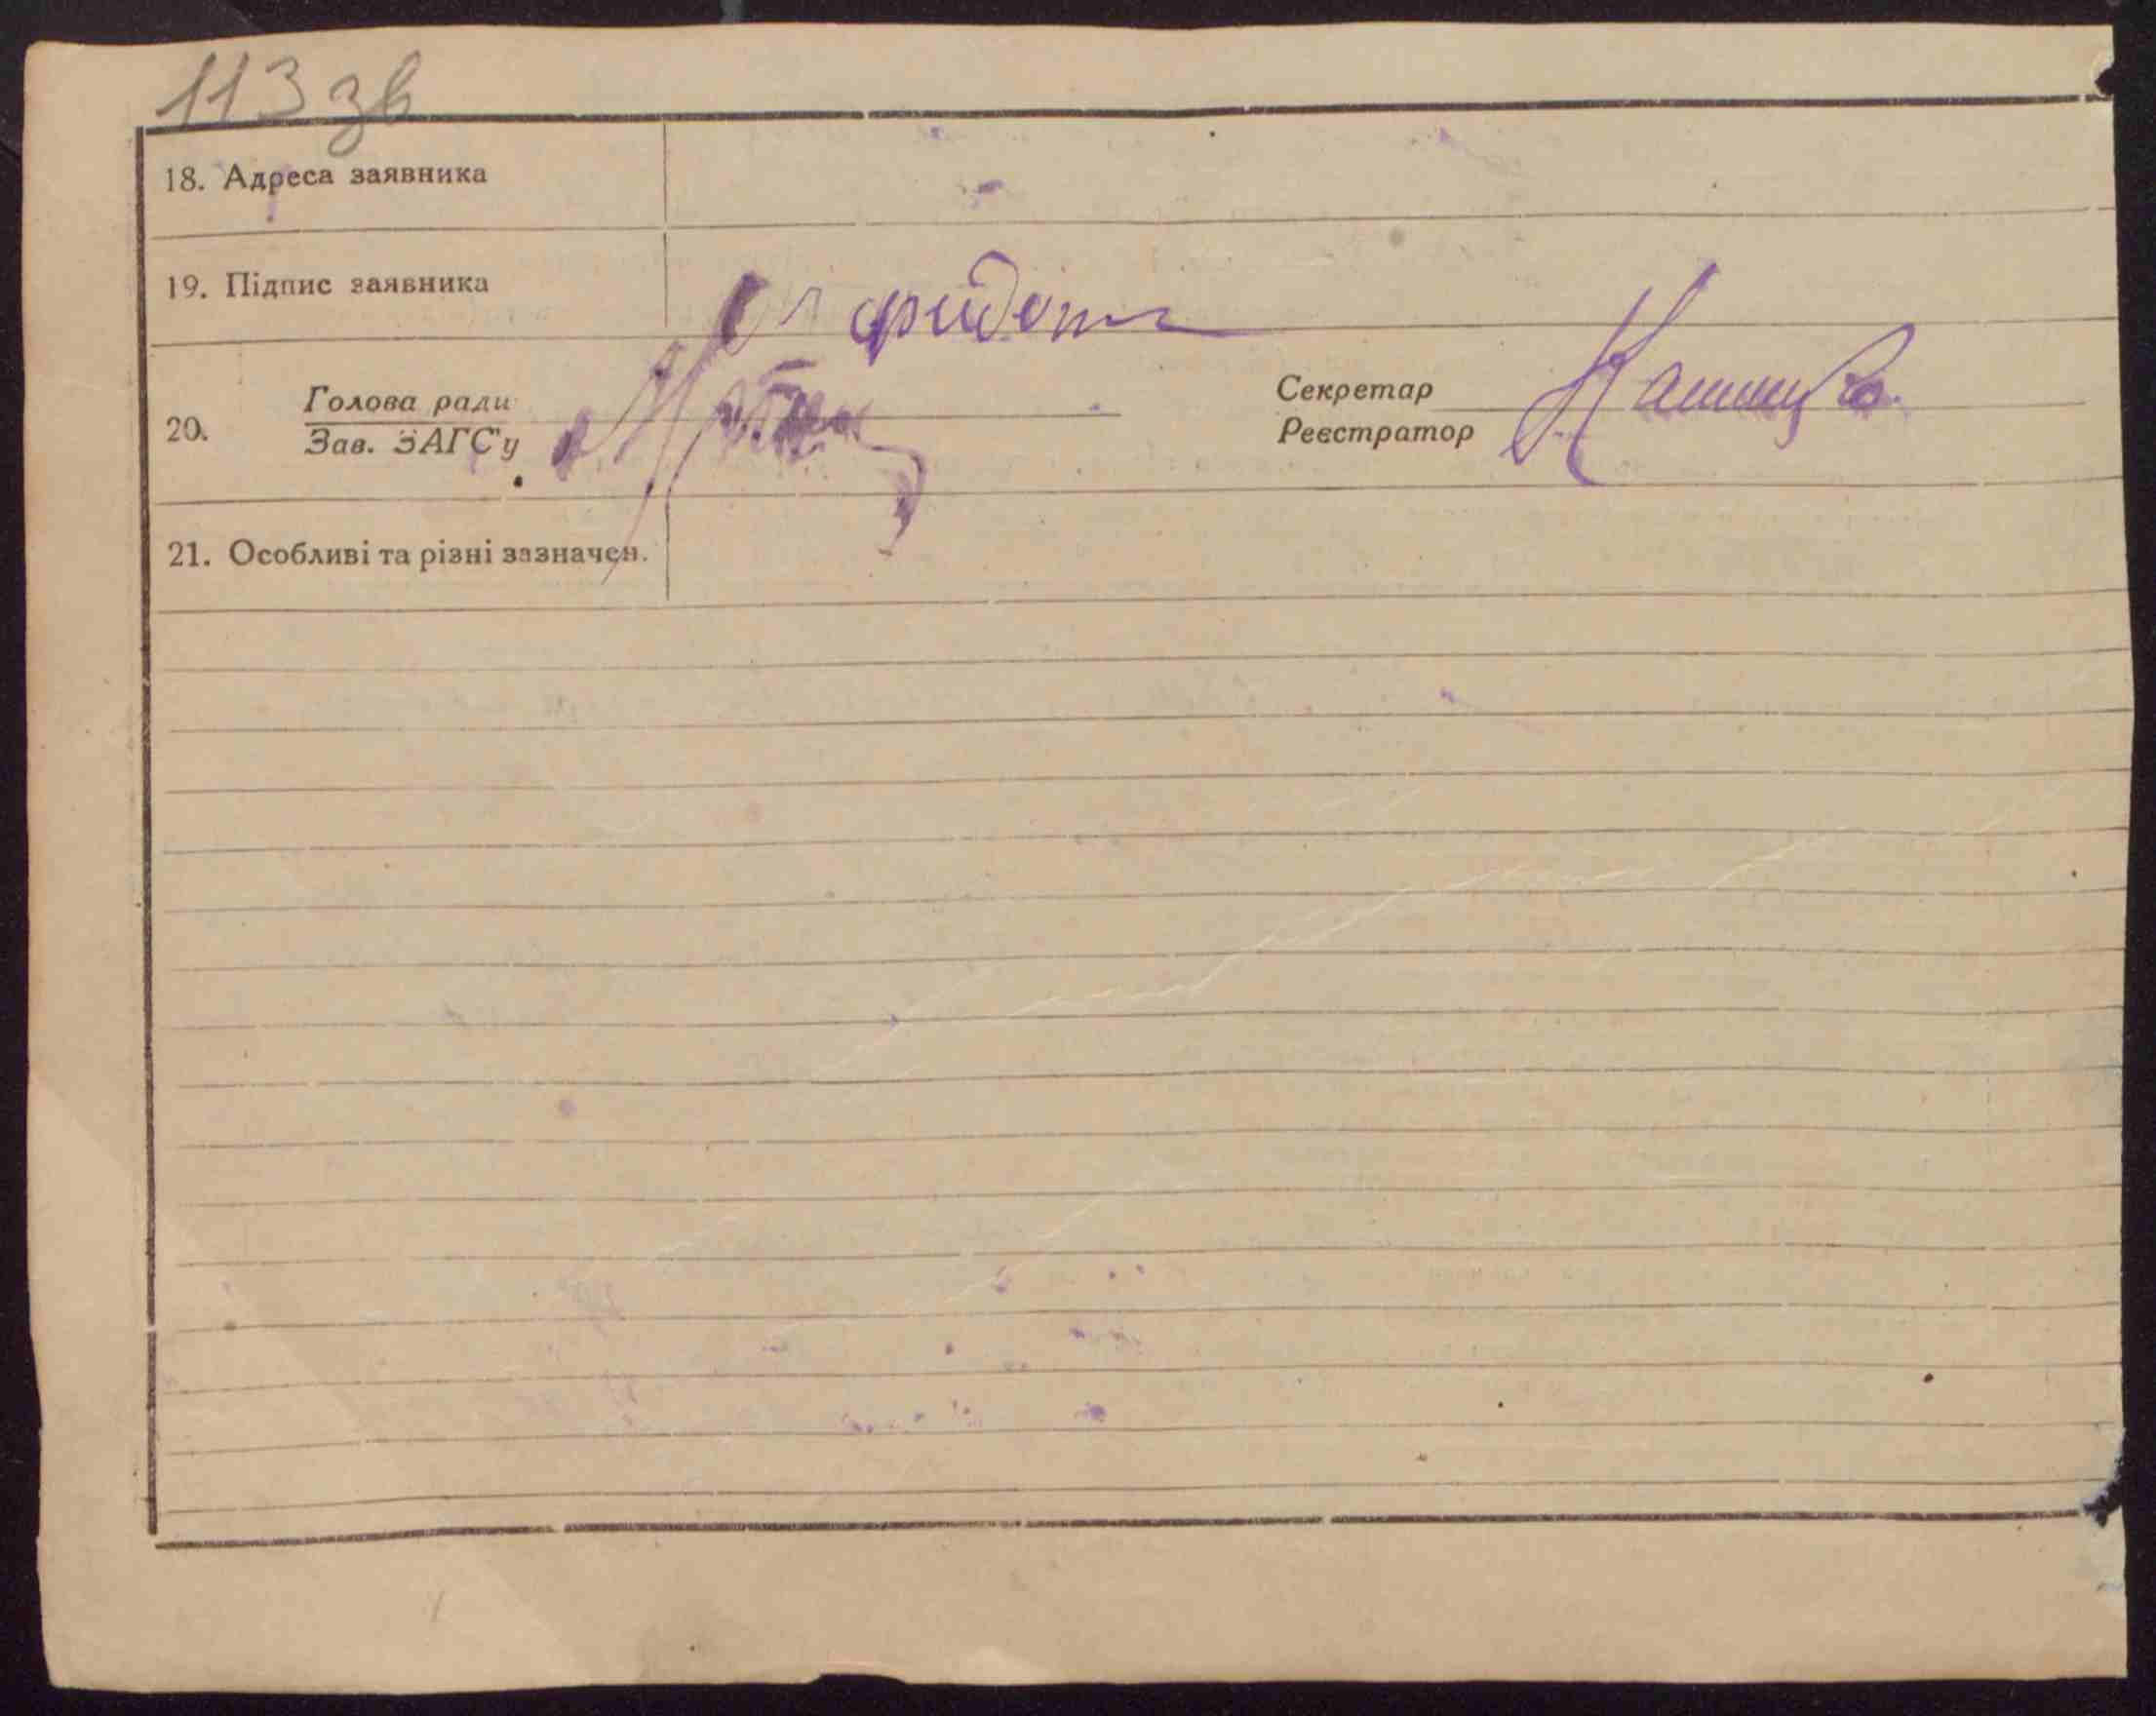 113 зв
18. Адреса заявника
19. Підпис заявника
20. Голова ради
Зав. ЗАГС'у
Секретар
Реєстратор
21. Особливі та різні зазначен.